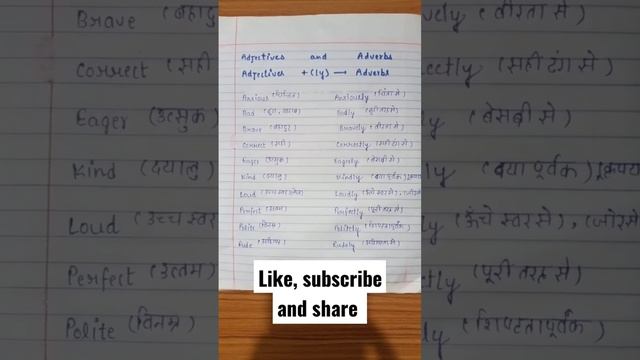 Adjectives and Adverbs
Adjectives + (ly) → Adverbs
Anxious (चिंतित) Anxiously (चिंता से)
Bad (बुरा, खराब) Badly (बुरी तरह से)
Brave (बहादुर) Bravely (वीरता से)
Correct (सही) Correctly (सही ढंग से)
Eager (उत्सुक) Eagerly (बेसब्री से)
Kind (दयालु) Kindly (दया पूर्वक)
Loud (उच्च स्वर Loudly (ऊंचे स्वर से), (जोर से
Perfect (उत्तम) Perfectly (पूरी तरह से)
Polite (विनम्र) Politely (शिष्टतापूर्वक)
Rude Rudely
Like, subscribe
and share
Brave (बहादु ely (वीरता से)
Correct (सही ectly (सही ढंग से)
Eager (उत्सुक) ly (बेसब्री से)
Kind (दयालु) ly (दया पूर्वक)
Loud (उच्च स्वर ly (ऊंचे स्वर से), (जोर से
Perfect (उत्तम) ctly (पूरी तरह से)
Polite (विनम्र) ly (शिष्टतापूर्वक)